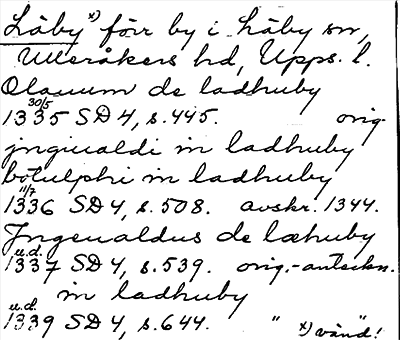 Låby x) förr by i Låby sn,
Ulleråkers hd, Upps. l.
Olauum de ladhuby
1335 30/5 SD 4, s. 445. orig.
jngiualdi in ladhuby
botulphi in ladhuby
1336 11/7 SD 4, s. 508. avskr. 1344.
Jngeualdus de læhuby
1337 u.d. SD 4, s. 539. orig.-anteckn.
in ladhuby
1339 u.d. SD 4, s. 644. " "
x) vänd!